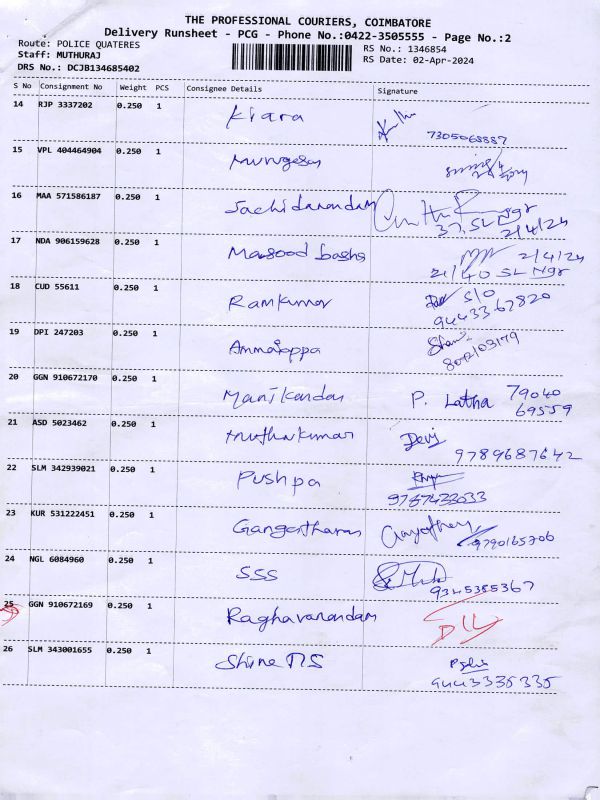 THE PROFESSIONAL COURIERS, COIMBATORE
Delivery Runsheet - PCG - Phone No.:0422-3505555 - Page No.:2
Route: POLICE QUATERES
RS No.: 1346854
Staff: MUTHURAJ
RS Date: 02-Apr-2024
DRS No.: DCJB134685402
S No Consignment No Weight PCS Consignee Details Signature
14 RJP 3337202 0.250 1 Kiara
7305068887
15 VPL 404464904 0.250 1 Murugesan
16 MAA 571586187 0.250 1 Sachidanandam
37, SL Ngr
2/4/24
17 NDA 906159628 0.250 1 Masood basha 2/4/24
21/40 SL Ngr
18 CUD 55611 0.250 1 Ramkumar S/O
94433 62820
19 DPI 247203 0.250 1 Ammaiappa
20 GGN 910672170 0.250 1 Manikandan P. Latha 79040
69559
21 ASD 5023462 0.250 1 Muthukumar Devi
9789687642
22 SLM 342939021 0.250 1 Pushpa
23 KUR 531222451 0.250 1 Gangatharan Gayathery
9790165306
24 NGL 6084960 0.250 1 SSS
9345385367
25 GGN 910672169 0.250 1 Raghavanandam
D/L
26 SLM 343001655 0.250 1 Shine TIS
9443335335